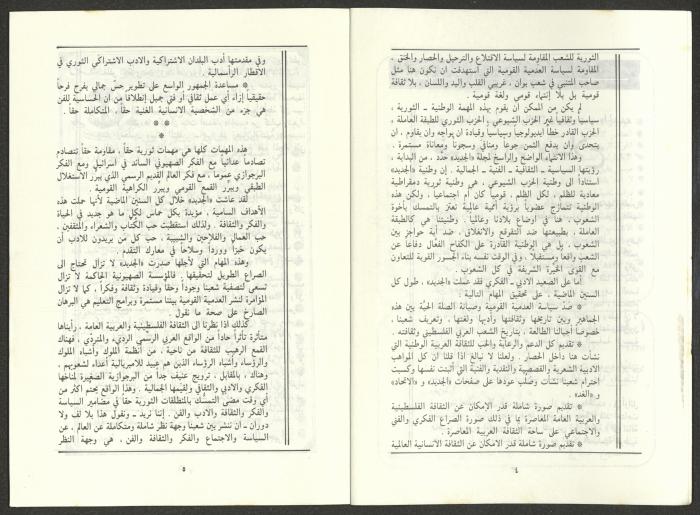 الثورية للشعب المقاومة لسياسة الاقتلاع والترحيل والحصار والخنق ،
المقاومة لسياسة العدمية القومية التي استهدفت ان نكون هنا مثل
صاحب المتنبي في شعب بوان ، غريبي القلب واليد واللسان ، بلا ثقافة
قومية بل بلا إنتماء قومي ولغة قومية
لم يكن من الممكن ان يقوم بهذه المهمة الوطنية ـ الثورية ،
سياسياً وثقافياً غير الحزب الشيوعي ، الحزب الثوري للطبقة العاملة ،
الحزب القادر خطاً ايديولوجيا وسياسياً وقيادة ان يواجه وان يقاوم ، ان
يتحدى وان يدفع الثمن جوعاً ومنافي وسجوناً ومعاناة مستمرة .
وهذا الانتماء الواضح والراسخ لمجلة «الجديد» حدد ، من البداية ،
رؤيتها السياسية ـ الثقافية ـ الفنية ـ الجمالية . إن وطنية «الجديد»
استناداً الى وطنية الحزب الشيوعي ، هي وطنية ثورية ديمقراطية
معادية للظلم ، لكل الظلم ، قومياً كان أم اجتماعياً ، ولكن هذه
الوطنية تتمازج عضوياً برؤية أممية عالمية تعتز بالتمسك بأخوة
الشعوب ، هنا في أوضاع بلادنا وعالمياً . وطنيتنا هي كالطبقة
العاملة ، بطبيعتها ضد التقوقع والانغلاق ، ضد أية حواجز بين
الشعوب ، بل هي الوطنية القادرة على الكفاح الفعّال دفاعاً عن
الشعب واقعاً ومستقبلاً ، وفي الوقت نفسه بناء الجسور القوية للتعاون
مع القوى الخيّرة الشريفة في كل الشعوب .
أما على الصعيد الادبي ـ الفكري فقد عملت «الجديد» ، طول كل
السنين الماضية ، على تحقيق المهام التالية :
* صدّ سياسة العدمية القومية وصيانة الصلة الحيّة بين هذه
الجماهير وبين تاريخها وثقافتها وأدبها ولغتها ، وتعريف شعبنا ،
خصوصاً أجيالنا الطالعة ، بتاريخ الشعب العربي الفلسطيني وثقافته .
* تقديم كل الدعم والرعاية والحب للثقافة العربية الوطنية التي
نشأت هنا داخل الحصار . ولعلنا لا نبالغ اذا قلنا ان كل المواهب
الادبية الشعرية والقصصية والنقدية والفنية التي أثبتت نفسها وكسبت
احترام شعبنا نشأت وصلب عودها على صفحات «الجديد» و «الاتحاد»
و «الغد»
* تقديم صورة شاملة قدر الامكان عن الثقافة الفلسطينية
والعربية العامة المعاصرة بما في ذلك صورة الصراع الفكري والفني
والاجتماعي على ساحة الثقافة العربية المعاصرة .
* تقديم صورة شاملة قدر الامكان عن الثقافة الانسانية العالمية
٤
وفي مقدمتها أدب البلدان الاشتراكية والادب الاشتراكي الثوري في
الاقطار الرأسمالية .
* مساعدة الجمهور الواسع على تطوير حسّ جمالي يفرح فرحاً
حقيقياً إزاء أي عمل ثقافي أو فني جميل إنطلاقاً من ان الحساسية للفن
هي جزء من الشخصية الانسانية الغنية حقاً ، المتكاملة حقاً .
* * *
هذه المهمات كلها هي مهمات ثورية حقاً ، مقاومة حقاً تتصادم
تصادماً عدائياً مع الفكر الصهيوني السائد في اسرائيل ومع الفكر
البرجوازي عموماً ، مع فكر العالم القديم الرسمي الذي يبرّر الاستغلال
الطبقي ويبرّر القمع القومي ويبرّر الكراهية القومية .
لقد عاشت «الجديد» خلال كل السنين الماضية لأنها حملت هذه
الأهداف السامية ، مؤيدة بكل حماس لكل ما هو جديد في الحياة
والفكر والثقافة . ولذلك استقطبت حب الكتّاب والشعراء والمثقفين ،
حب العمال والفلاحين والشبيبة ، حب كل من يريدون للأدب أن
يكون خبزاً وورداً وسلاحاً في معارك التقدم .
وهذه المهام التي لأجلها صدرت «الجديد» لا تزال تحتاج الى
الصراع الطويل لتحقيقها . فالمؤسسة الصهيونية الحاكمة لا تزال
تسعى لتصفية شعبنا وجوداً وحقاً وقيادة وثقافة وفكراً ، كما لا تزال
المؤامرة لنشر العدمية القومية بيننا مستمرة وبرامج التعليم هي البرهان
الصارخ على صحة ما نقول .
كذلك إذا نظرنا الى الثقافة الفلسطينية والعربية العامة ، رأيناها
متأثرة تأثراً حاداً من الواقع العربي الرسمي الرديء والمتردّي ، فهناك
القمع الرهيب للثقافة من ناحية ، من أنظمة الملوك وأشباه الملوك
والرؤساء وأشباه الرؤساء الذين هم عبيد للامبريالية أعداء لشعوبهم ،
وهناك ، بالمقابل ، ترويج عنيف جداً من البرجوازية الصغيرة لمناخها
الفكري والادبي والثقافي ولقيمها الجمالية . وهذا الواقع يحتم أكثر من
أي وقت مضى التمسك بالمنطلقات الثورية حقاً في مضامير السياسة
والفكر والثقافة والادب والفن . إننا نريد ـ ونقول هذا بلا لف ولا
دوران ـ ان ننشر بين شعبنا وجهة نظر شاملة ومتكاملة عن العالم ، عن
السياسة والاجتماع والفكر والثقافة والفن ، هي وجهة النظر
٥